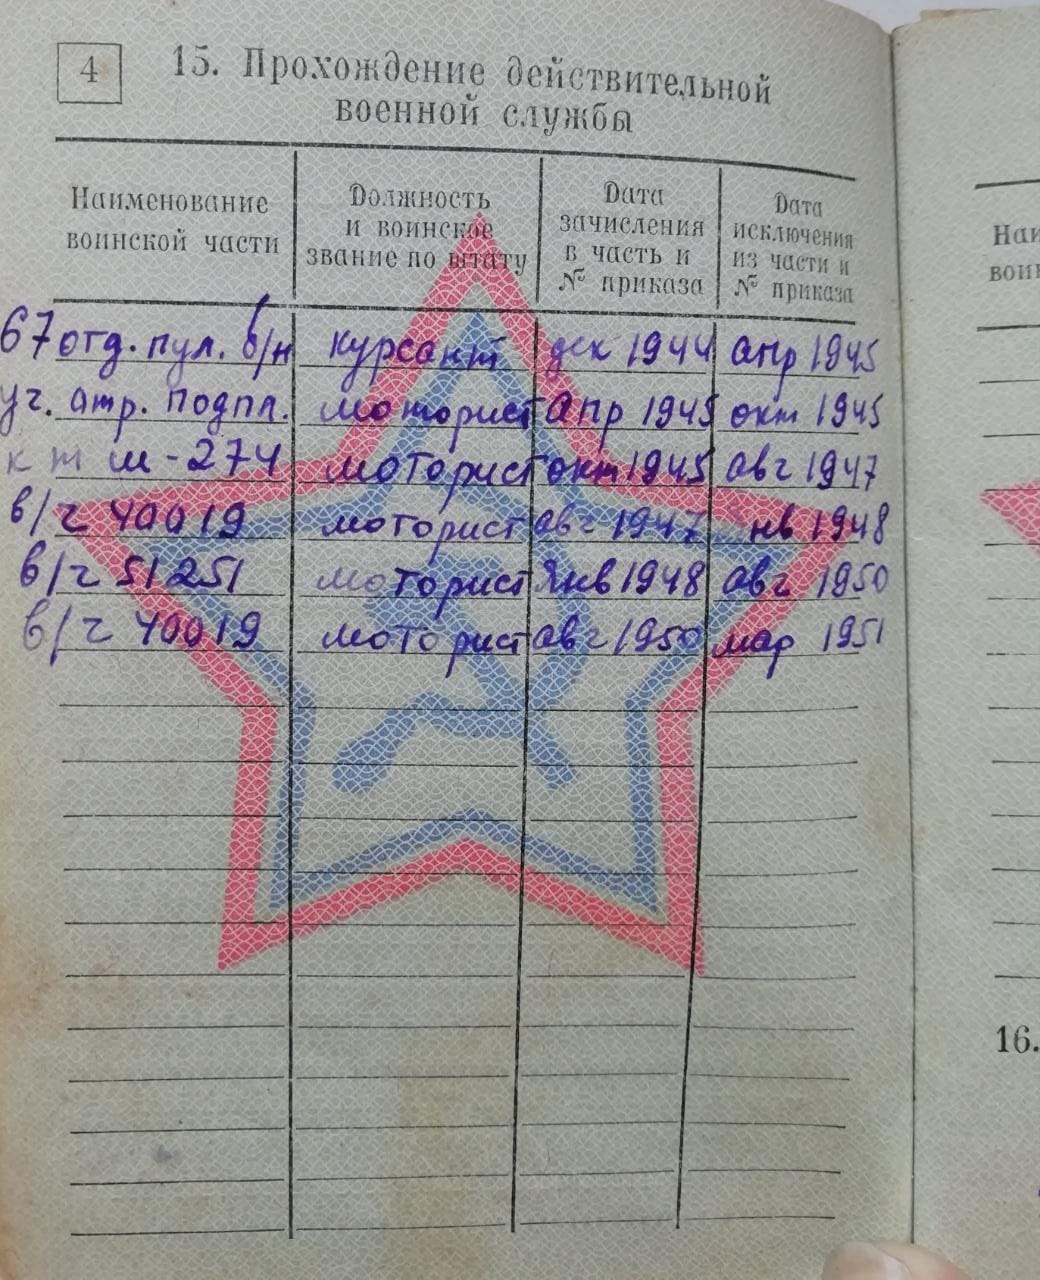 4
15. Прохождение действительной
военной службы
Наименование
воинской части
Должность
и воинское
звание по штату
Дата
зачисления
в часть и
№ приказа
Дата
исключения
из части и
№ приказа
67 отд. пул. б/н курсант дек 1944 апр 1945
уч. отр. подпл. моторист апр 1945 окт 1945
к т щ-274 моторист окт 1945 авг 1947
в/ч 40019 моторист авг 1947 янв 1948
в/ч 51251 моторист янв 1948 авг 1950
в/ч 40019 моторист авг 1950 мар 1951
16.